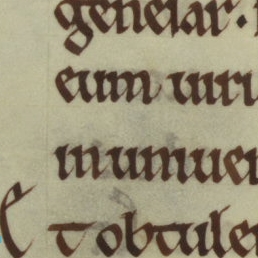 genesar.
eum uiri
in uniuer
Et obtuler